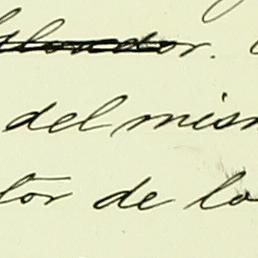 del mism
tor de lo